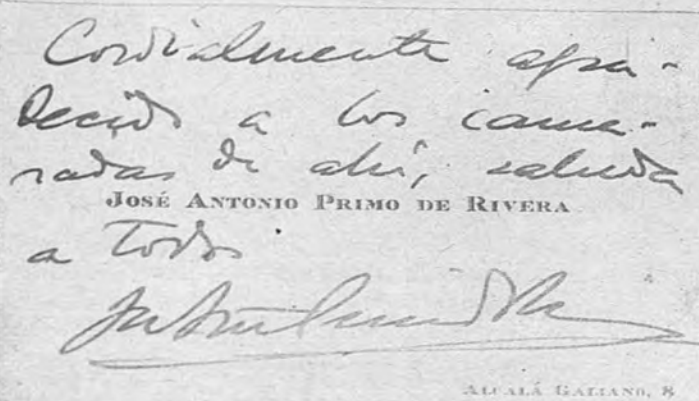 Cordialmente agra-
decido a los cama-
radas de ahí, saluda
JOSÉ ANTONIO PRIMO DE RIVERA
a todos
ALCALÁ GALIANO, 8